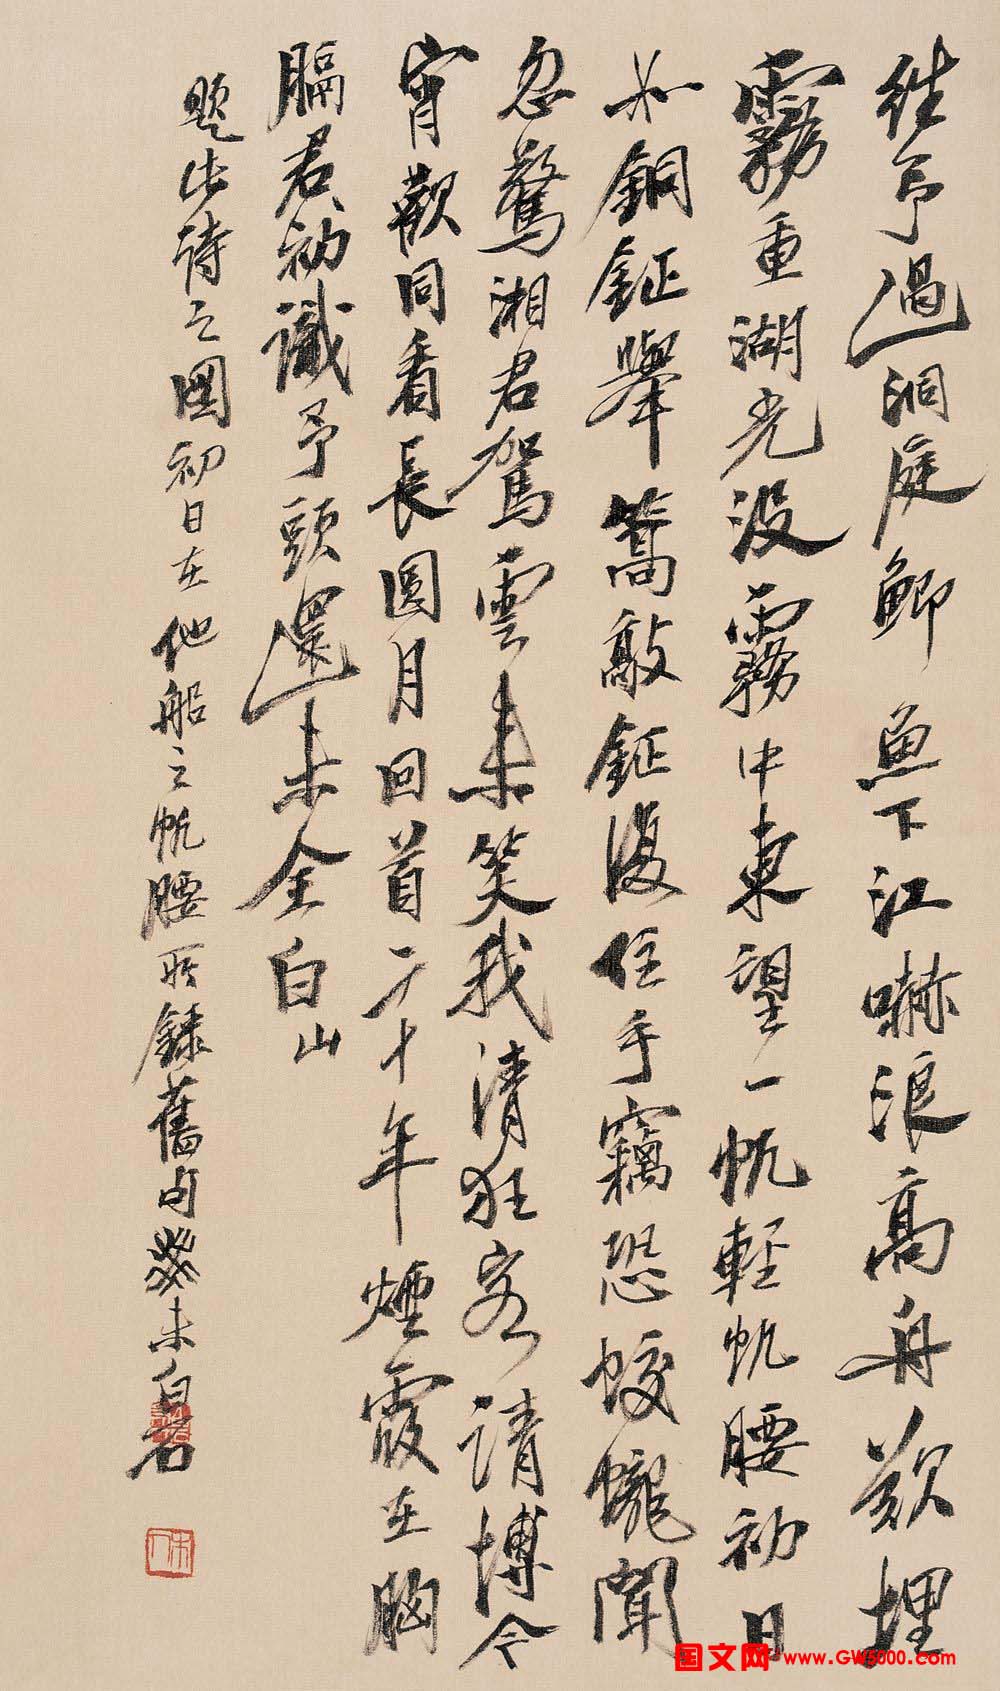 往予過洞庭鯽魚下江嚇浪高舟欲埋
霧重湖光沒霧中東望一帆輕帆腰初日
如銅鉦舉篙敲鉦復住手竊恐蛟蠬聞
忽驚湘君駕雲來笑我清狂客請博今
宵歡同看長圓月回首二十年煙霞在胸
膈君初識予頭還未全白山
題此詩之圖初日在他船之帆腰所錄舊句癸未白石
国文网 www.GW5000.com